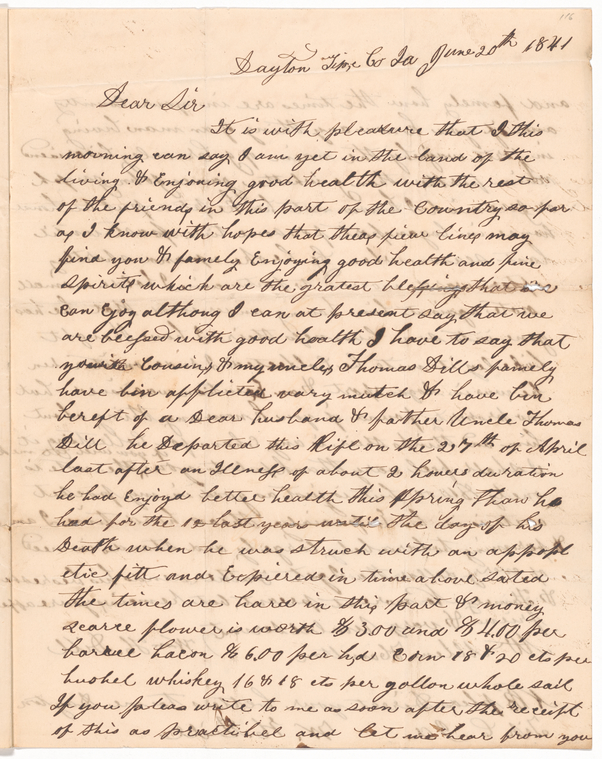 116
Dayton Tipe Co Ia June 20th 1841
Dear Sir
It is with plearure that I this
morning can say I am yet in the land of the
living & Enjoning good health with the rest
of the friends in this part of the Country so far
as I know with hopes that theas fiew lines may
find you & famely Enjoying good health and fine
Spirits which are the gratest blessings that we
can Ejoy althoug I can at present say that we
are blessed with good health I have to say that
Cousins & my uncles Thomas Dills famely
have bin afflicted vary mutch & have bin
bereft of a Dear husband & father Uncle Thomas
Dill he Departed this life on the 27th of April
last after an Illness of about 2 houers duration
he had Enjoyd better health this Spring than he
had for the last year the day of his
Death when he was struck with an appopl
etic fitt and Expiered in time above sated
the times are hard in this part & money
scarce flower is worth $3.00 and $4.00 per
barrel bacon $6.00 per hd Corn 18 & 20 cts per
bushel whiskey 16 & 18 cts per gollon whole sail
If you pleas write to me as soon after the receipt
of this as practibel and let me hear from you